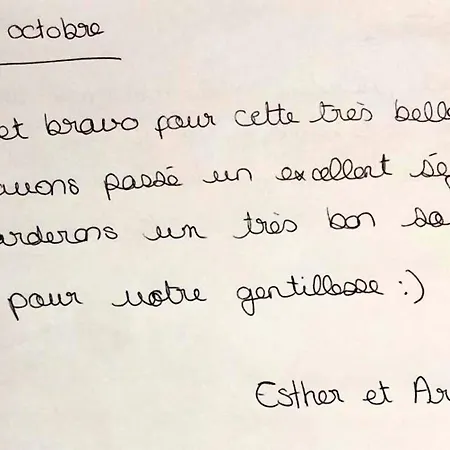 octobre
et bravo pour cette très belle
avons passé un excellent sé
arderons un très bon so
pour votre gentillesse :)
Esther et Ar